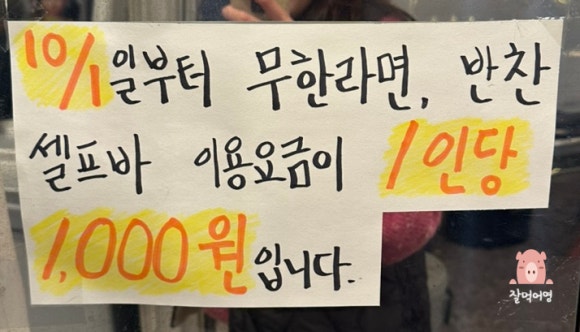 10/1일부터 무한라면, 반찬
셀프바 이용요금이 1인당
1,000원입니다.
잘먹어영